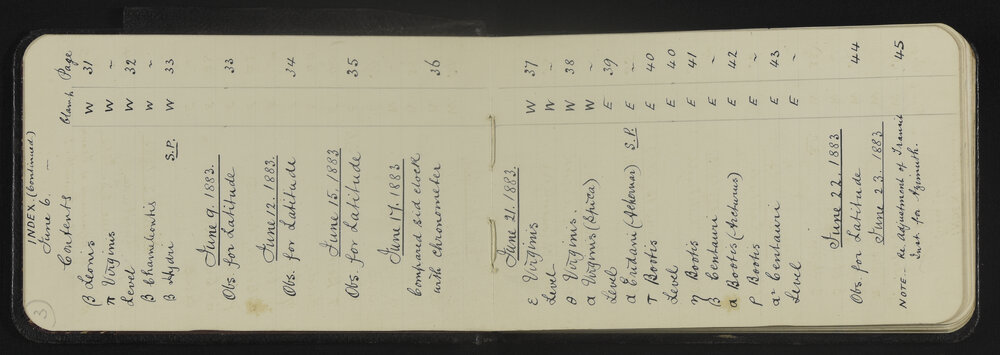 3
INDEX. (Continued.)
June 6. —
Contents Clamp. Page
β Leonis W 31
π Virginis W "
Level W 32
β Chamæleontis W "
β Hydri S.P. W 33
June 9. 1883.
Obs. for Latitude 33
June 12. 1883.
Obs. for Latitude 34
June 15. 1883
Obs. for Latitude 35
June 17. 1883
Compared sid clock
with chronometer 36
June 21. 1883.
ε Virginis W 37
Level W "
θ Virginis W 38
α Virginis (Spica) W "
Level E 39
α Eridani (Achernar) S.P. E "
τ Bootis E 40
Level E 40
η Bootis E 41
β Centauri E "
α Bootis (Arcturus) E 42
ρ Bootis E "
α² Centauri E 43
Level E "
June 22. 1883
Obs. for Latitude 44
June 23. 1883
NOTE — Re. adjustment of Transit
Inst. for Azimuth. 45